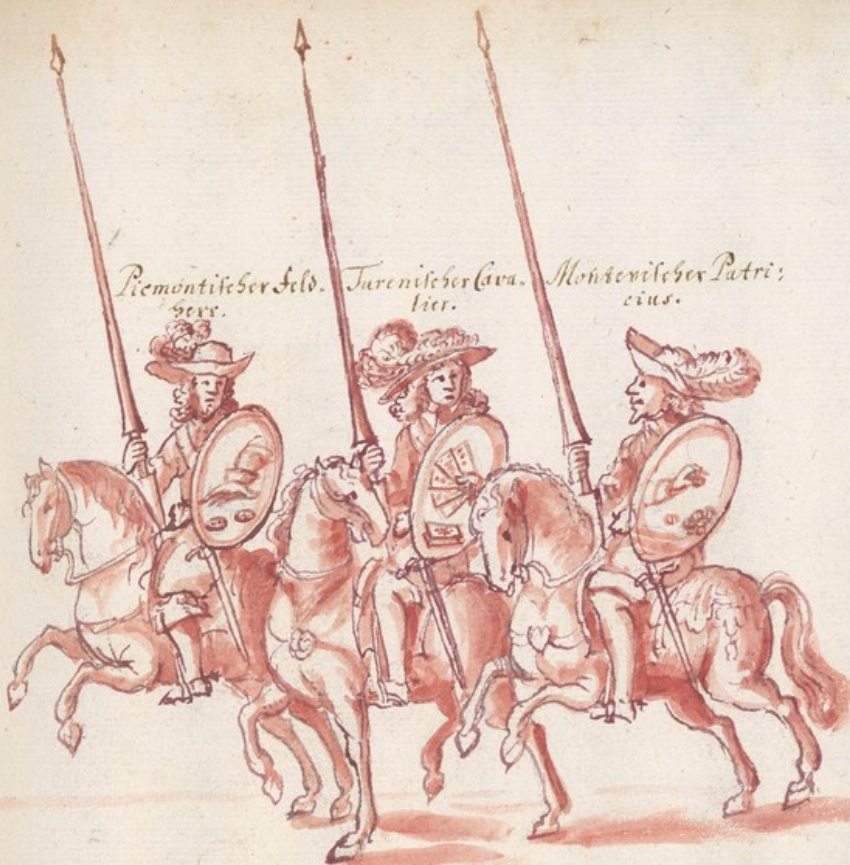 Piemontischer Feld-
herr.
Turenischer Cava-
lier.
Montevischer Patri:
cius.